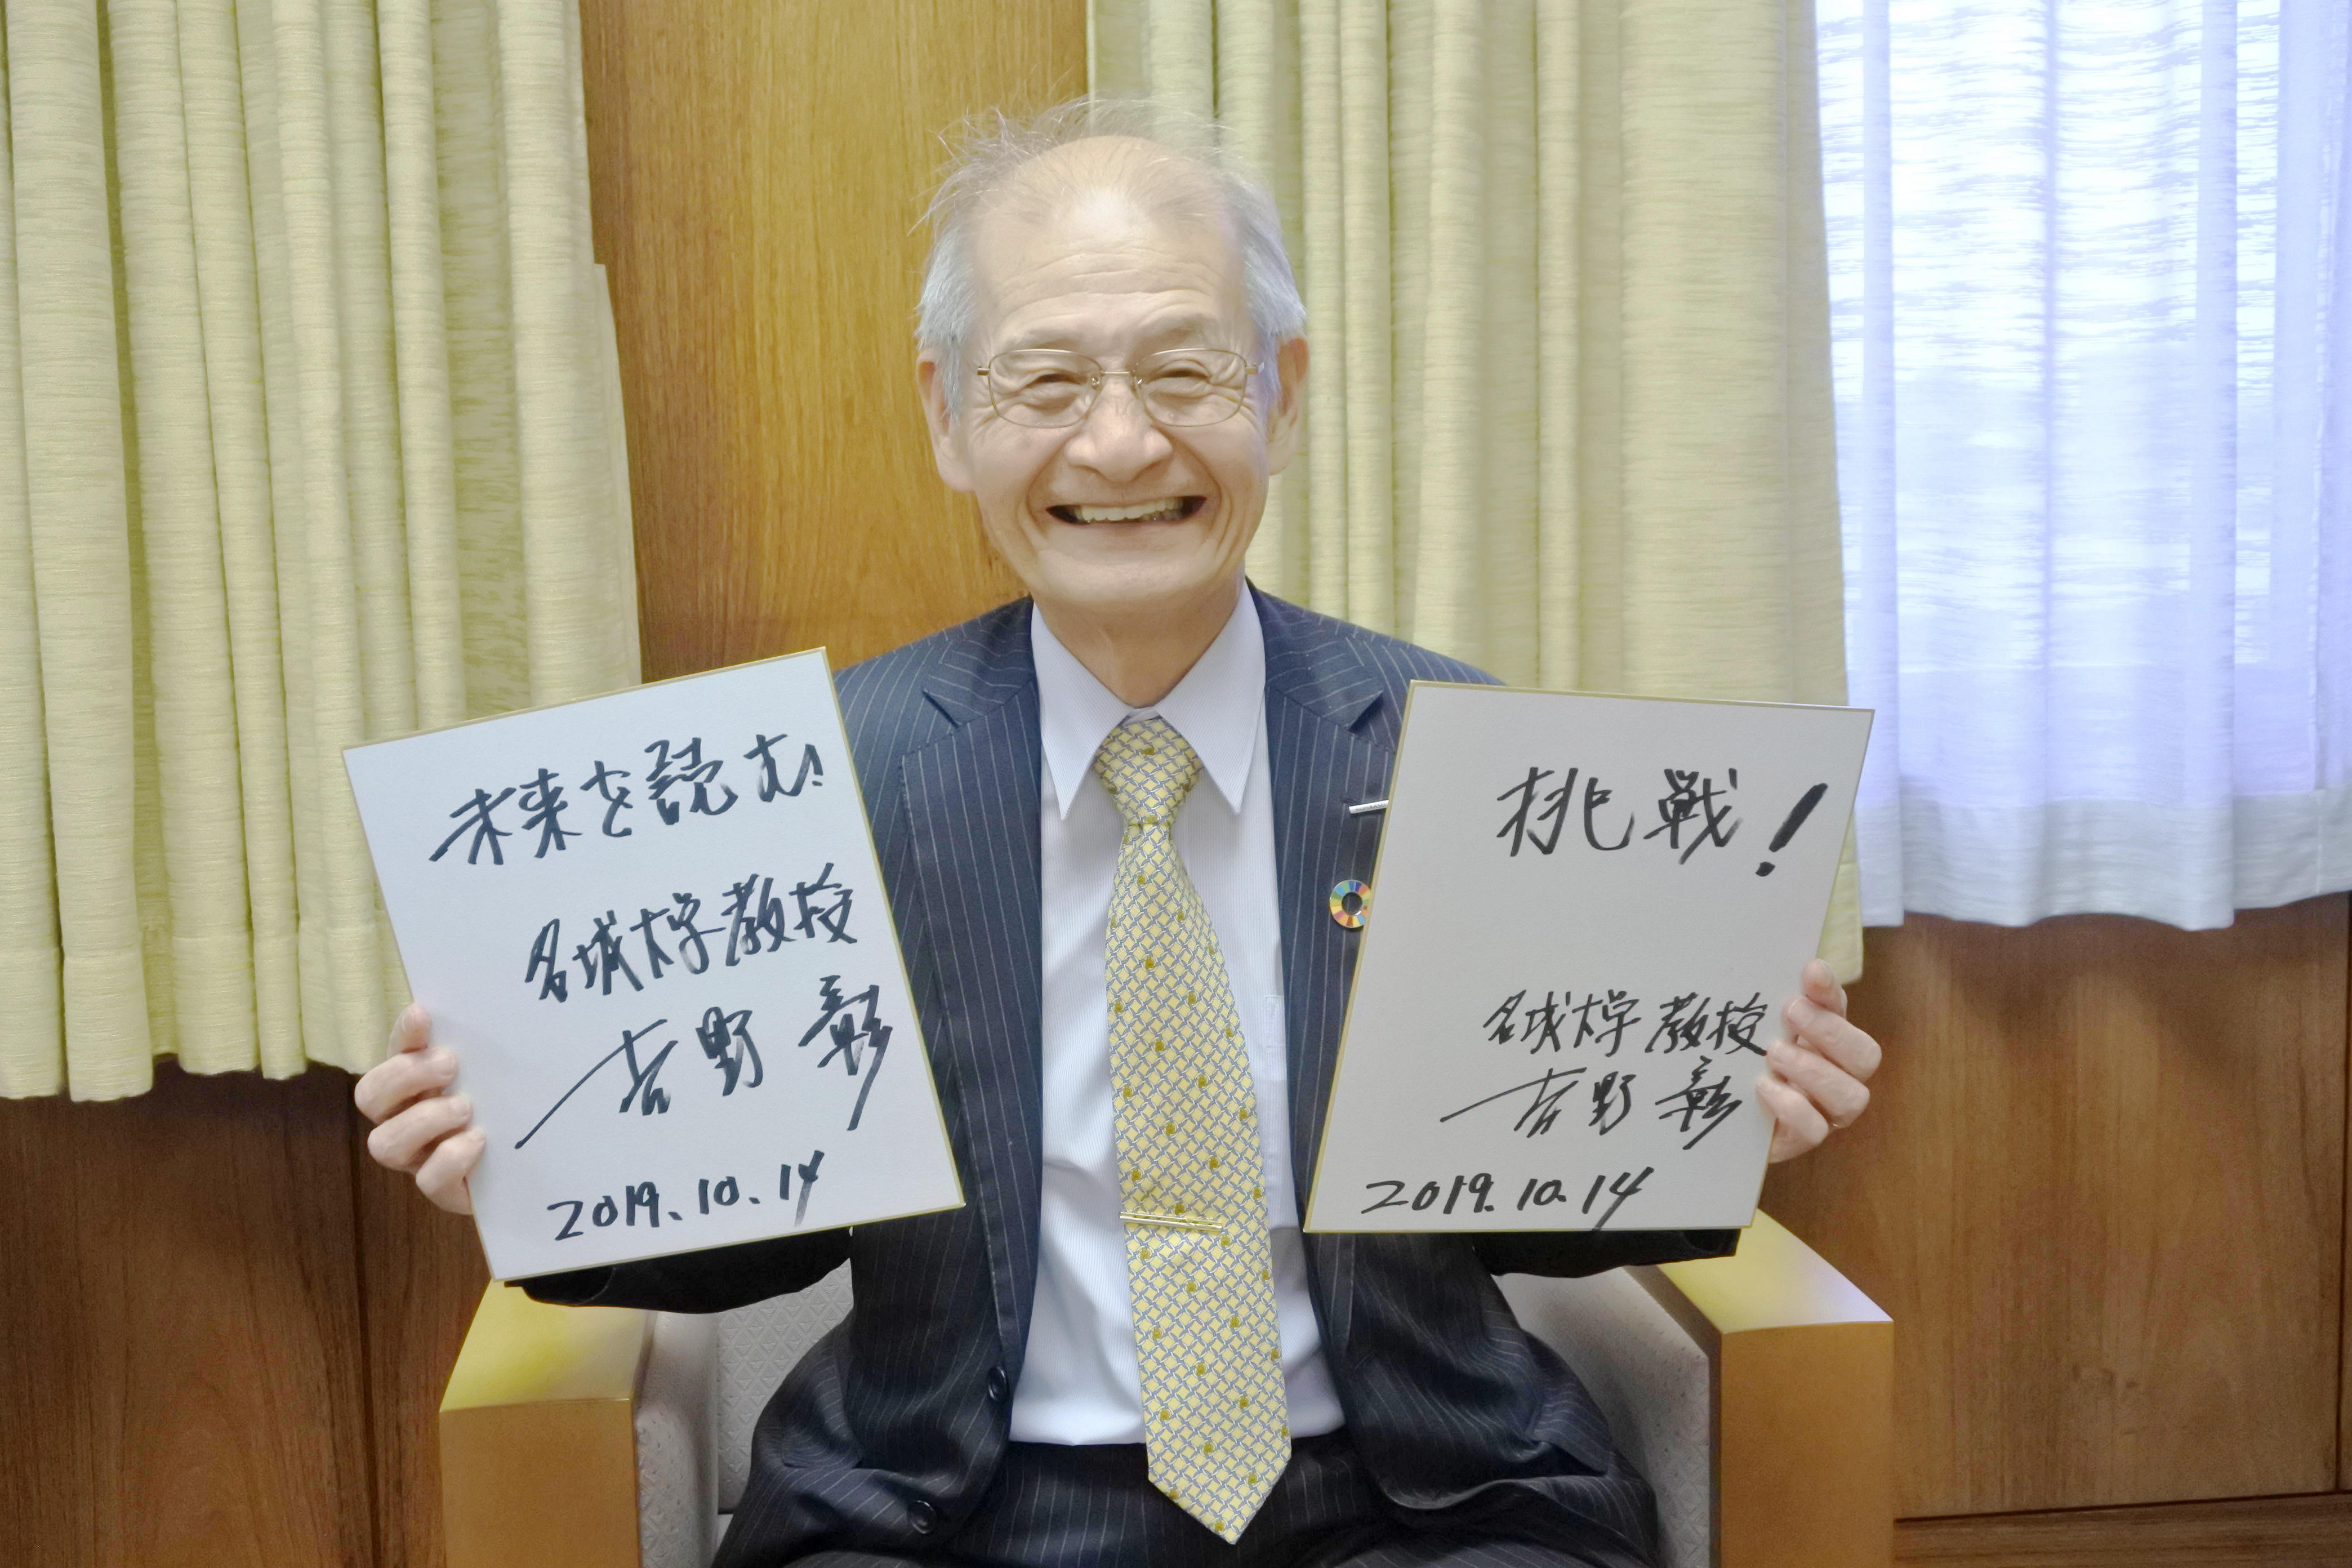 未来を読む!
名城大学教授
吉野 彰
2019.10.14
挑戦!
名城大学 教授
吉野 彰
2019.10.14